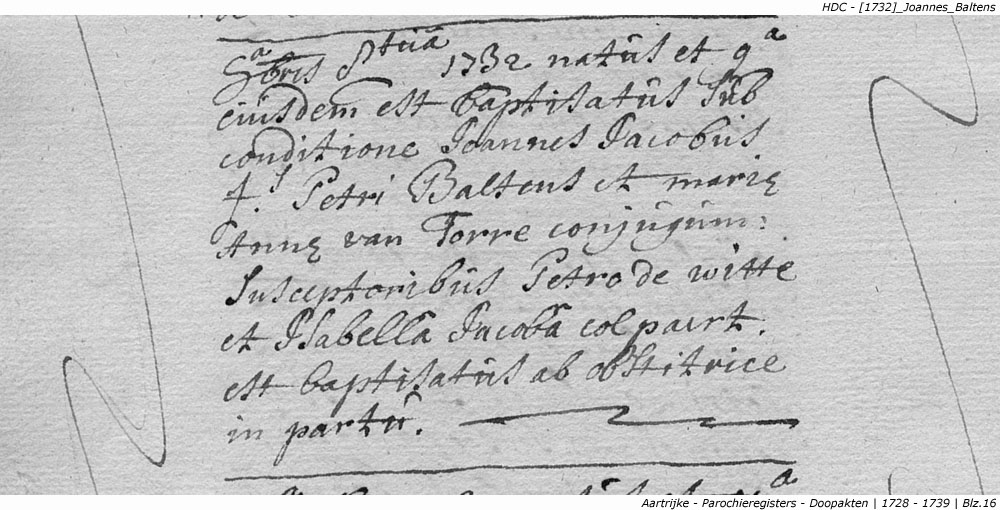 HDC - [1732]_Joannes_Baltens
9ᵃbris 8tiia 1732 natus et 9ᵃ
eiusdem est baptisatus sub
conditione Joannes Jacobus
f.ˢ Petri Baltens et marię
Annę van Torre conjugum:
Susceptoribus Petro de witte
et Isabella Jacoba colpaert.
est baptisatus ab obstitrice
in partu.
Aartrijke - Parochieregisters - Doopakten | 1728 - 1739 | Blz.16